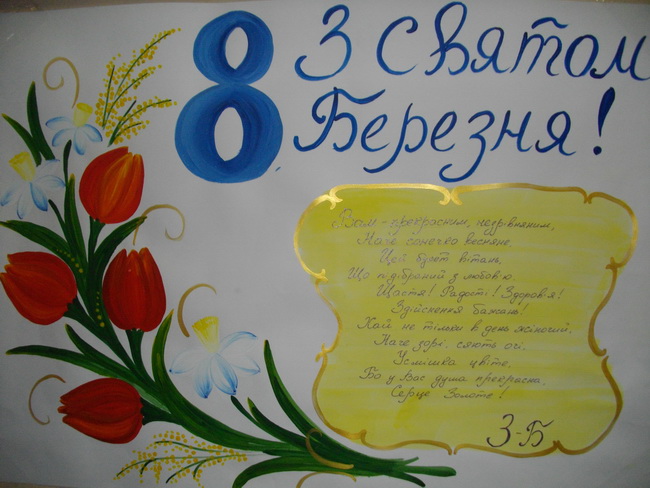 8 З святом
Березня!
Вам - прекрасним, незрівняним,
Наче сонечко весняне,
Цей букет вітань,
Що підібраний з любов'ю.
Щастя! Радості! Здоров'я!
Здійснення бажань!
Хай не тільки в день жіночий,
Наче зорі, сяють очі,
Усмішка цвіте,
Бо у Вас душа прекрасна,
Серце Золоте!
3-Б